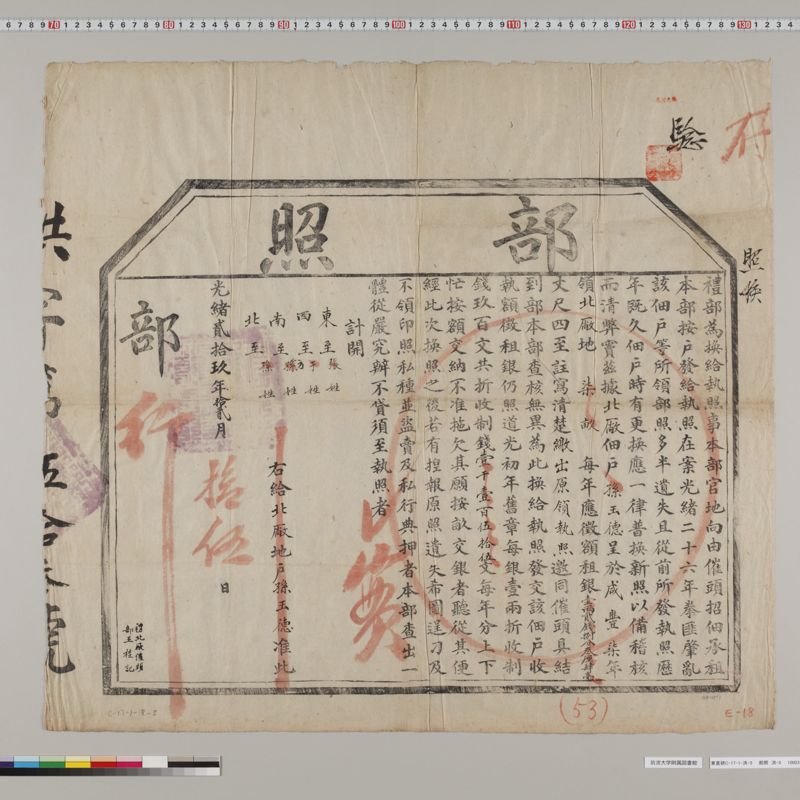 部照
禮部為換給執照事本部官地向由催頭招佃承租
本部按戶發給執照在案光緒二十六年拳匪肇亂
該佃戶等所領部照多半遺失且從前所發執照歷
年既久佃戶時有更換應一律普換新照以備稽核
而清弊竇茲據北厰佃戶孫玉德呈於咸豐柒年
領北厰地 柒畝 每年應徵額租銀
丈尺四至註寫清楚繳出原領執照邀同催頭具結
到部本部查核無異為此換給執照發交該佃戶收
執額徵租銀仍照道光初年舊章每銀壹兩折收制
錢玖百文共折收制錢壹千壹百伍拾伍文每年分上下
忙按額交納不准拖欠其願按畝交銀者聽從其便
經此次換照之後若有捏報原照遺失希圖逞刁及
不領印照私種並盜賣及私行典押者本部查出一
體從嚴究辦不貸須至執照者
計開
東至張姓
西至
南至孫姓
北至孫姓
右給北厰地戶孫玉德准此
光緒貳拾玖年拾貳月拾伍日
部
行
實
驗
照換
(53)
E-18
C-17-1-洪-5
筑波大学附属図書館